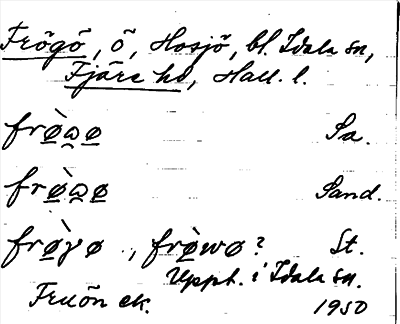 Frögö, ö, Hosjö, bl. Idala sn,
Fjäre hd, Hall. l.
frø̀ꞷø Sa.
frø̀ꞷø Sand.
frø̀γø, frø̀wø? St.
Uppt. i Idala sn.
Fruön ek. 1950